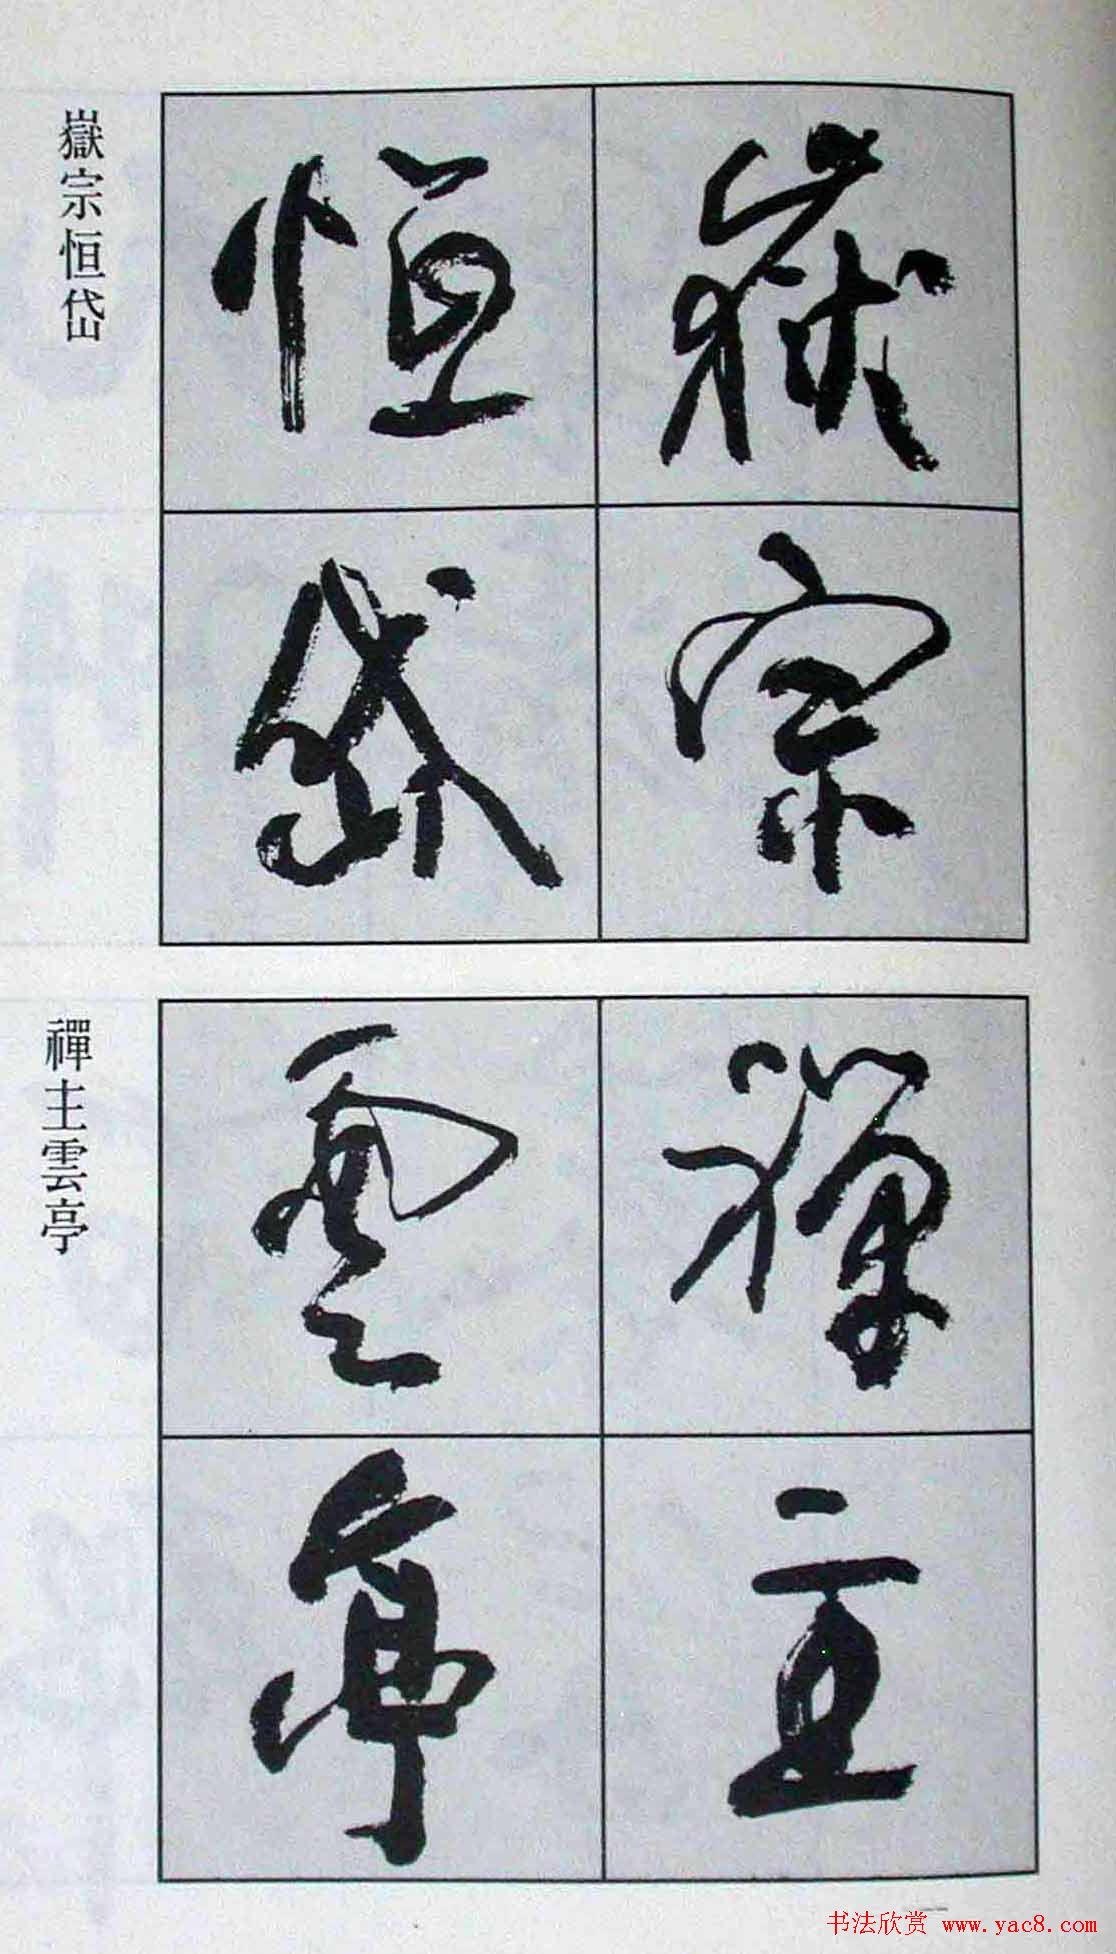 嶽宗
恒岱
嶽宗恒岱
禪主
雲亭
禪主雲亭
书法欣赏 www.yac8.com